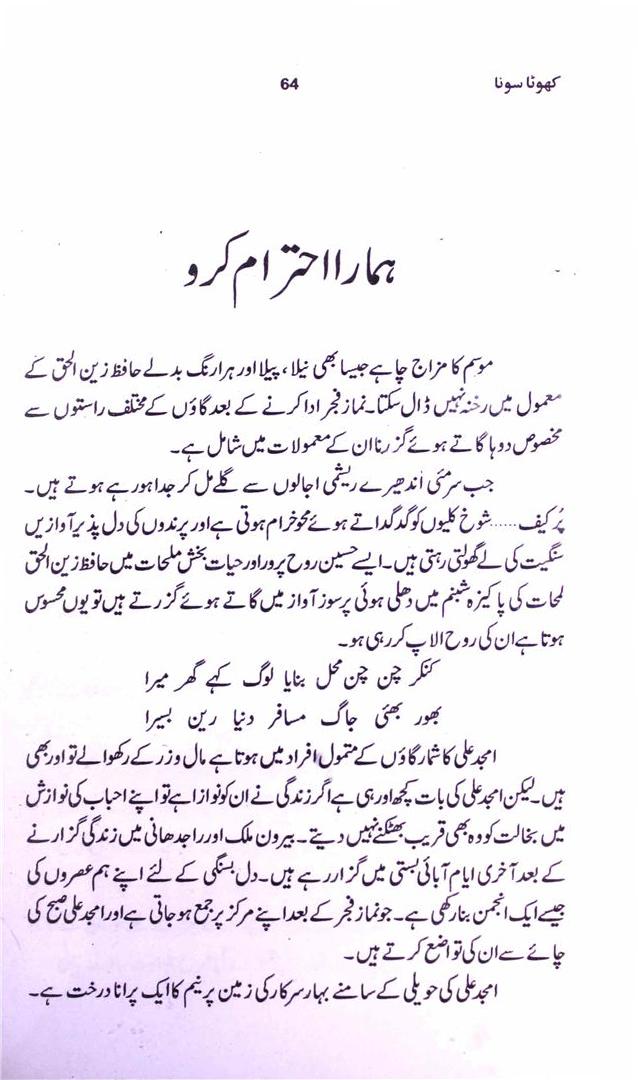 کھوٹا سونا 64
ہمارا احترام کرو
موسم کا مزاج چاہے جیسا بھی نیلا، پیلا اور ہرا رنگ بدلے حافظ زین الحق کے
معمول میں رخنہ نہیں ڈال سکتا۔ نماز فجر ادا کرنے کے بعد گاؤں کے مختلف راستوں سے
مخصوص دوہا گاتے ہوئے گزرنا ان کے معمولات میں شامل ہے۔
جب سرمئی اندھیرے ریشمی اجالوں سے گلے مل کر جدا ہو رہے ہوتے ہیں۔
پُر کیف...... شوخ کلیوں کو گدگداتے ہوئے محو خرام ہوتی ہے اور پرندوں کی دل پذیر آوازیں
سنگیت کی لے گھولتی رہتی ہیں۔ ایسے حسین روح پرور اور حیات بخش ملحات میں حافظ زین الحق
لمحات کی پاکیزہ شبنم میں دھلی ہوئی پرسوز آواز میں گاتے ہوئے گزرتے ہیں تو یوں محسوس
ہوتا ہے ان کی روح الاپ کر رہی ہو۔
کنکر چن چن محل بنایا لوگ کہے گھر میرا
بھور بھئی جاگ مسافر دنیا رین بسیرا
امجد علی کا شمار گاؤں کے متمول افراد میں ہوتا ہے مال و زر کے رکھوالے تو اور بھی
ہیں۔ لیکن امجد علی کی بات کچھ اور ہی ہے اگر زندگی نے ان کو نوازا ہے تو اپنے احباب کی نوازش
میں بخالت کو وہ بھی قریب بھٹکنے نہیں دیتے۔ بیرون ملک اور راجدھانی میں زندگی گزارنے
کے بعد آخری ایام آبائی بستی میں گزار رہے ہیں۔ دل بستگی کے لئے اپنے ہم عصروں کی
جیسے ایک انجمن بنا رکھی ہے۔ جو نماز فجر کے بعد اپنے مرکز پر جمع ہو جاتی ہے اور امجد علی صبح کی
چائے سے ان کی تواضع کرتے ہیں۔
امجد علی کی حویلی کے سامنے بہار سرکار کی زمین پر نیم کا ایک پرانا درخت ہے۔